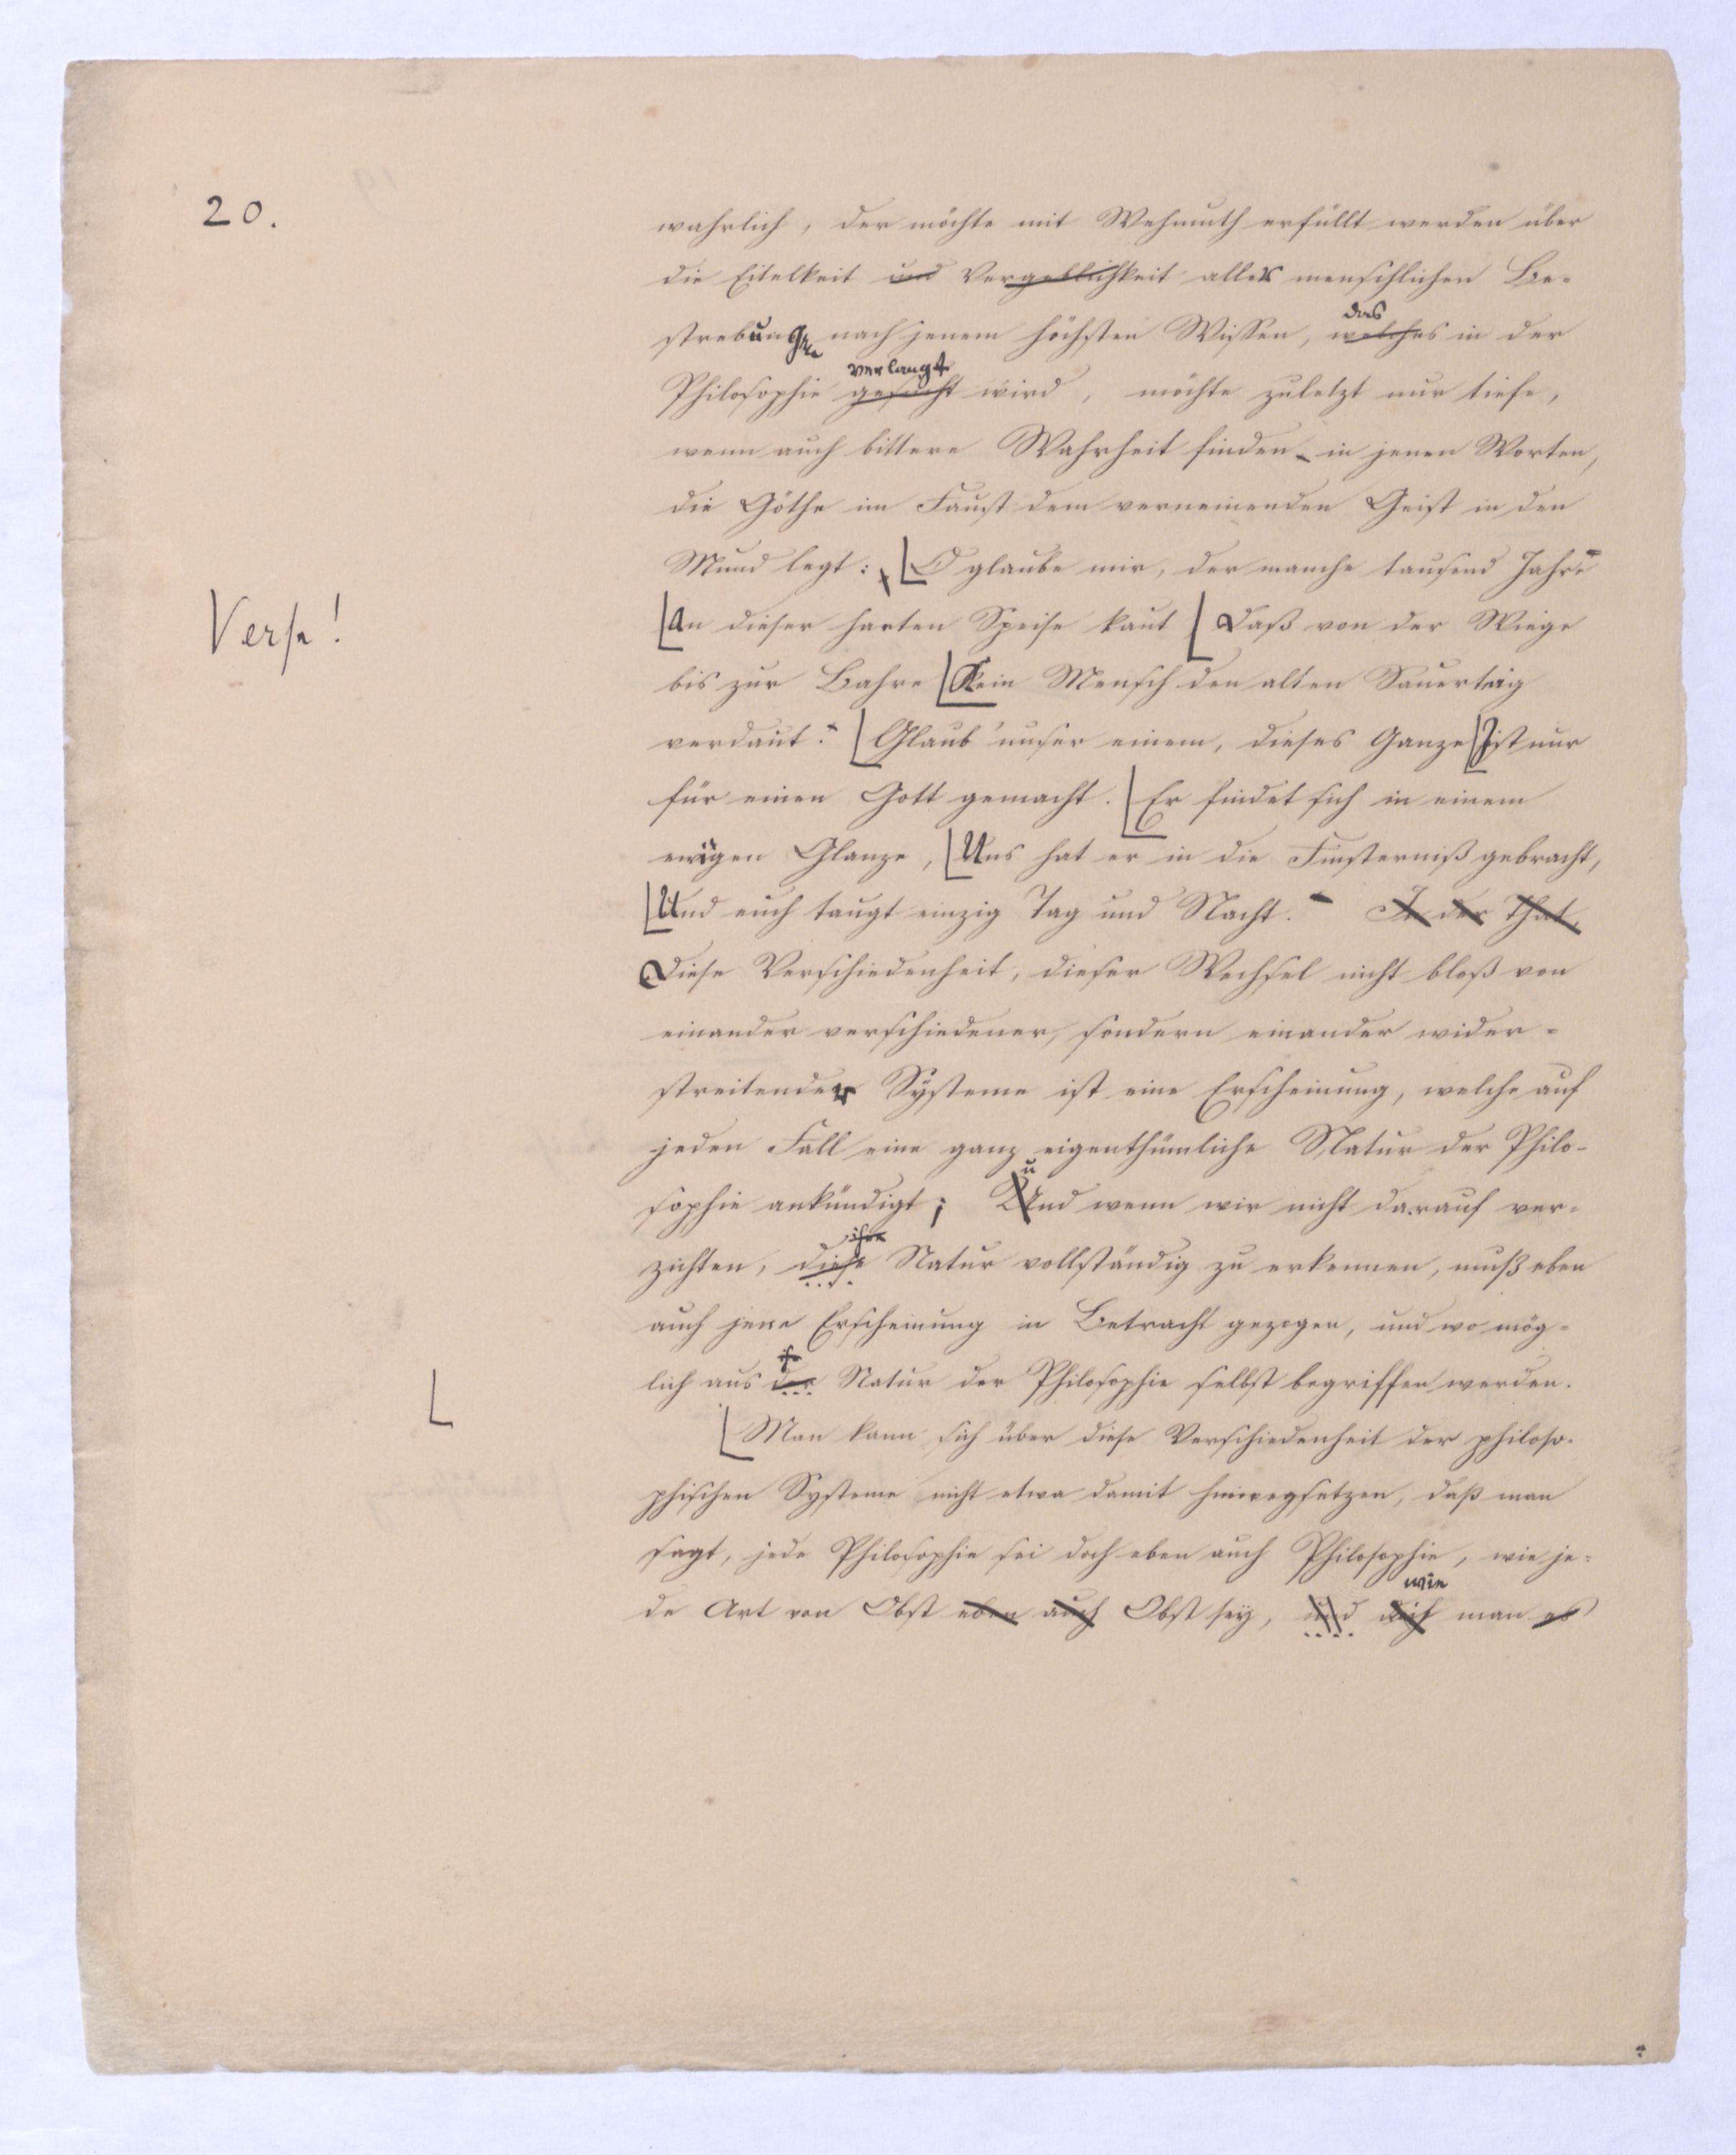 20.
wahrlich, der möchte mit Wehmuth erfüllt werden über
die Eitelkeit und Vergeblichkeit aller menschlichen Be-
das
strebungen nach jenem höchsten Wissen, welches in der
verlangt
Philosophie gesucht wird, möchte zuletzt nur tiefe,
wenn auch bittere Wahrheit finden in jenen Worten,
die Göthe im Faust dem verneinenden Geist in den
Mund legt: O glaube mir, der manche tausend Jahre
Verse!
An dieser harten Speise kaut Daß von der Wiege
bis zur Bahre Kein Mensch den alten Sauerteig
verdaut. Glaub' unser einem, dieses Ganze Ist nur
für einen Gott gemacht. Er findet sich in einem
ewigen Glanze, Uns hat er in die Finsterniß gebracht,
Und euch taugt einzig Tag und Nacht. In der That,
Diese Verschiedenheit, dieser Wechsel nicht bloß von
einander verschiedener, sondern einander wider-
streitender Systeme ist eine Erscheinung, welche auf
jeden Fall eine ganz eigenthümliche Natur der Philo-
u
sophie ankündigt; Und wenn wir nicht darauf ver-
ihre
zichten, diese Natur vollständig zu erkennen, muß eben
auch jene Erscheinung in Betracht gezogen, und wo mög-
lich aus der Natur der Philosophie selbst begriffen werden.
Man kann sich über diese Verschiedenheit der philoso-
phischen Systeme nicht etwa damit hinwegsetzen, daß man
sagt, jede Philosophie sei doch eben auch Philosophie, wie je-
wie
de Art von Obst eben auch Obst sey, und daß man es